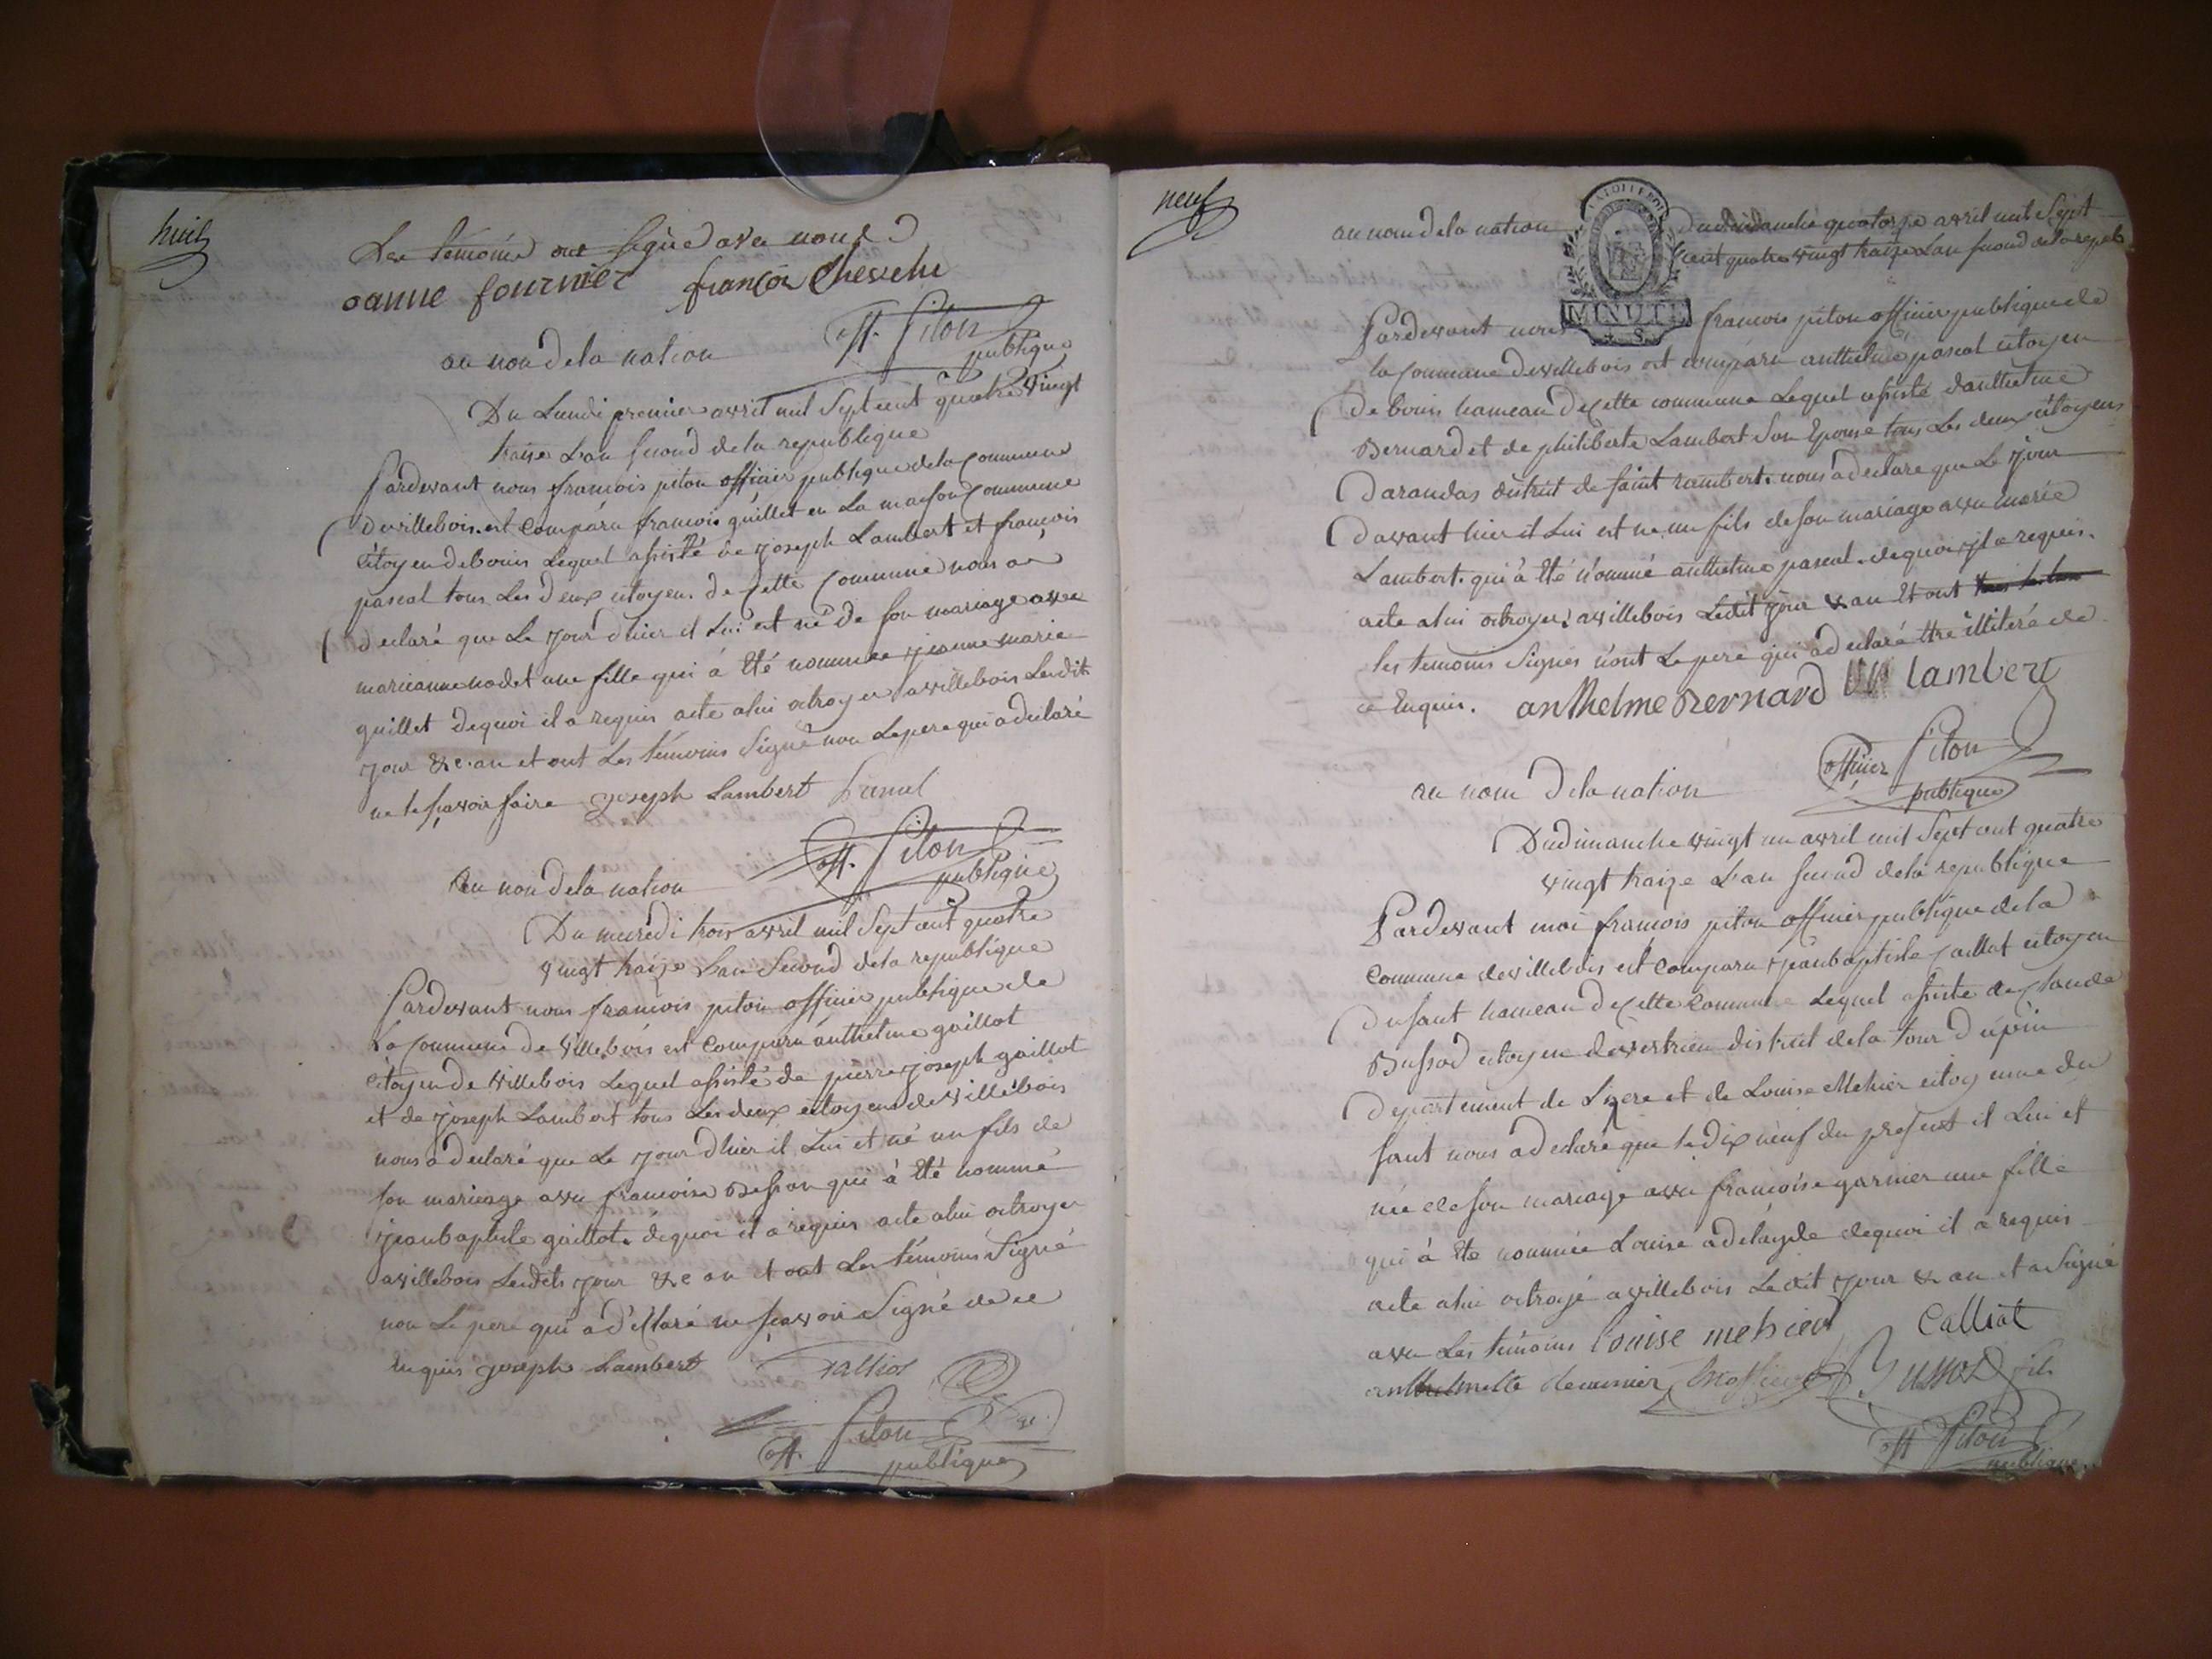 huit
Les témoins ont signé avec nous
oanne fournier françois Chesselu
off. piton publique
au nom de la nation
Du Lundi premier avril mil Sept cent quatre vingt
traise L'an second de la republique
Pardevant nous francois piton officier publique de la Commune
de villebois. est comparu francois guillet en La maison Commune
citoyen de bouis Lequel assisté de joseph Lambert et françois
pascal tous Les deux citoyens de Cette Commune nous a
declaré que Le jour d'hier il Lui est né de son mariage avec
marieanne nodet une fille qui à été nommée jeanne marie
guillet dequoi il a requis acte a lui octroyer a villebois Lesdit
jour & an et ont Les témoins Signé non Le pere qui a declaré
ne le sçavoir faire joseph Lambert pascal
off. piton publique
Au nom de la nation
Du mecredi trois avril mil Sept cent quatre
vingt traize L'an Second de la republique
Pardevant nous francois piton officier publique de
La Commune de villebois est comparu anthelme gaillot
citoyen de villebois Lequel assisté de pierre joseph gaillot
et de joseph Lambert tous Les deux citoyens de villebois
nous a declaré que Le jour d'hier il Lui est né un fils de
son mariage avec francoise Besson qui à été nommé
jeanbaptiste gaillot. dequoi il a requis acte a lui octroyer
a villebois Lesdits jour & an et ont Les témoins Signé
non Le pere qui a declaré ne sçavoir Signé de ce
enquis joseph Lambert Galliot
off. piton publique
neuf
au nom de la nation
MINUTE
Du dimanche quatorze avril mil Sept
cent quatre vingt traize L'an second de la repub
Pardevant nous francois piton officier publique de
la Commune de villebois est comparu anthelme pascal citoyen
De bouis hameau de Cette commune Lequel assisté d'anthelme
Bernard et de philiberte Lambert Son Epouse tous Les deux citoyens
D'arandas district de saint rambert. nous a declare que Le jour
d'avant hier il Lui est né un fils de son mariage avec marie
Lambert. qui à été nommé anthelme pascal. dequoi il a requis.
acte a lui octroyer a villebois Ledit jour & an Et ont
les temoins Signés non Le pere qui a declaré être illiteré de
ce Enquis. anthelme Bernard Lambert
officier piton publique
au nom de la nation
Du dimanche vingt un avril mil Sept cent quatre
vingt traize L'an second de la republique
Pardevant moi francois piton officier publique de la
Commune de villebois est comparu jeanbaptiste Caillot citoyen
Du saut hameau de Cette Commune Lequel assisté de Claude
Bussod citoyen de vertrieu district de la tour du pin
Departement de Lizere et de Louise Mehier citoyenne du
saut nous a declaré que le dix neuf du present il Lui est
née de son mariage avec francoise garnier une fille
qui à été nommée Louise adelayde dequoi il a requis
acte a lui octroyé a villebois Ledit jour & an et a Signé
avec Les témoins Louise mehier Calliat
Bussod fils
off piton publique